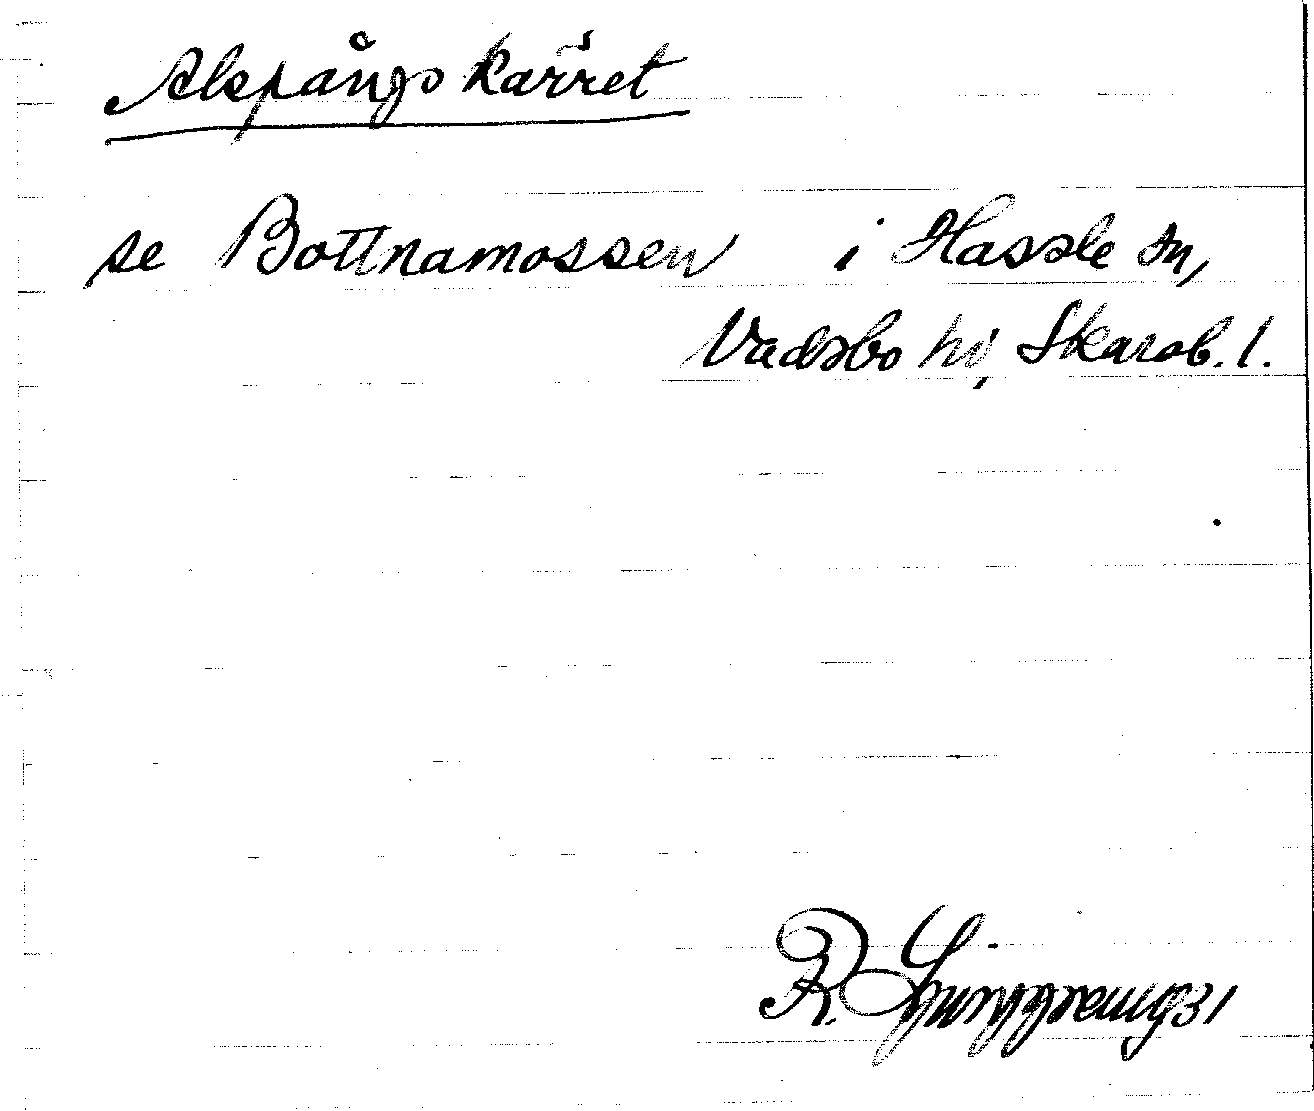 Alspångskärret
se Bottnamossen i Hassle sn,
Vadsbo hd, Skarab. l.
R. Ljunggren 1931